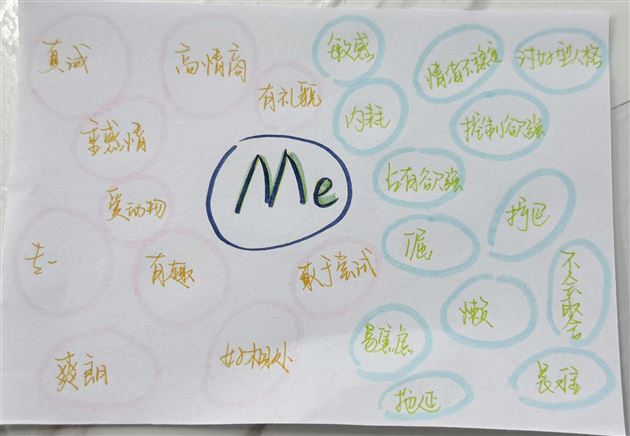 真诚
高情商
有礼貌
重感情
爱动物
专一
有趣
敢于尝试
爽朗
好相处
Me
敏感
情绪不稳定
讨好型人格
内耗
控制欲强
占有欲强
拧巴
倔
不会取舍
懒
易焦虑
拖延
畏难